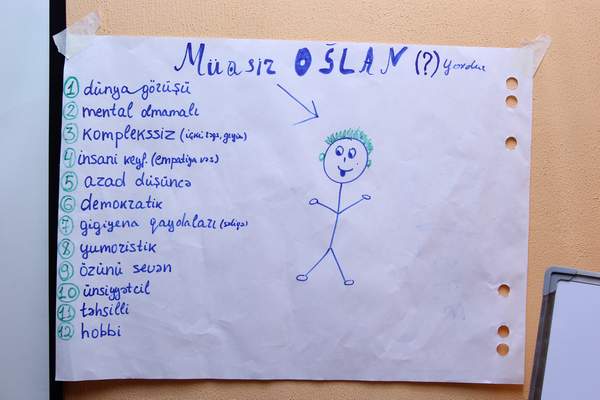 Müasir OĞLAN (?)
1 dünya görüşü
2 mental olmamalı
3 komplekssiz (içki
4 insani keyf. (empatiya
5 azad düşüncə
6 demokratik
7 gigiyena qaydaları
8 yumoristik
9 özünü sevən
10 ünsiyyətcil
11 təhsilli
12 hobbi